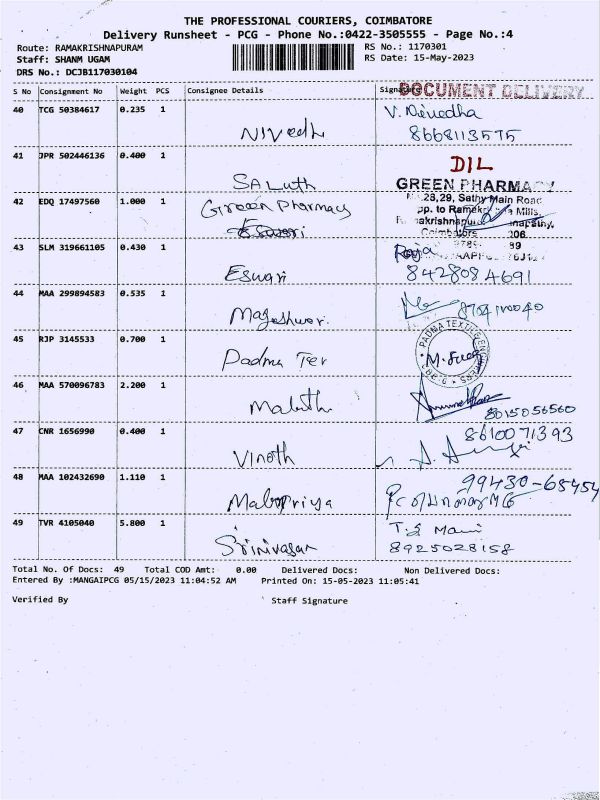 THE PROFESSIONAL COURIERS, COIMBATORE
Delivery Runsheet - PCG - Phone No.:0422-3505555 - Page No.:4
Route: RAMAKRISHNAPURAM
RS No.: 1170301
Staff: SHANM UGAM
RS Date: 15-May-2023
DRS No.: DCJB117030104
S No Consignment No Weight PCS Consignee Details Signature
DOCUMENT DELIVERY
40 TCG 50384617 0.235 1 Nivedh V. Nivedha
8668113575
41 JPR 502446136 0.400 1 Saluth DIL
42 EDQ 17497560 1.000 1 Green Pharmacy GREEN PHARMA
28,29, Sathy Main Road
pp. to Mills,
Coimbatore
43 SLM 319661105 0.430 1 Eswari Raja
8428084691
44 MAA 299894583 0.535 1 Mageshwari
45 RJP 3145533 0.700 1 Padma Tex PADMA TEXTILE
46 MAA 570096783 2.200 1
8015056560
47 CNR 1656990 0.400 1 Vinoth 8610071393
48 MAA 102432690 1.110 1 Malopriya 99430-65454
49 TVR 4105040 5.800 1 Srinivasan T.S Mani
8925028158
Total No. Of Docs: 49 Total COD Amt: 0.00 Delivered Docs: Non Delivered Docs:
Entered By :MANGAIPCG 05/15/2023 11:04:52 AM Printed On: 15-05-2023 11:05:41
Verified By Staff Signature